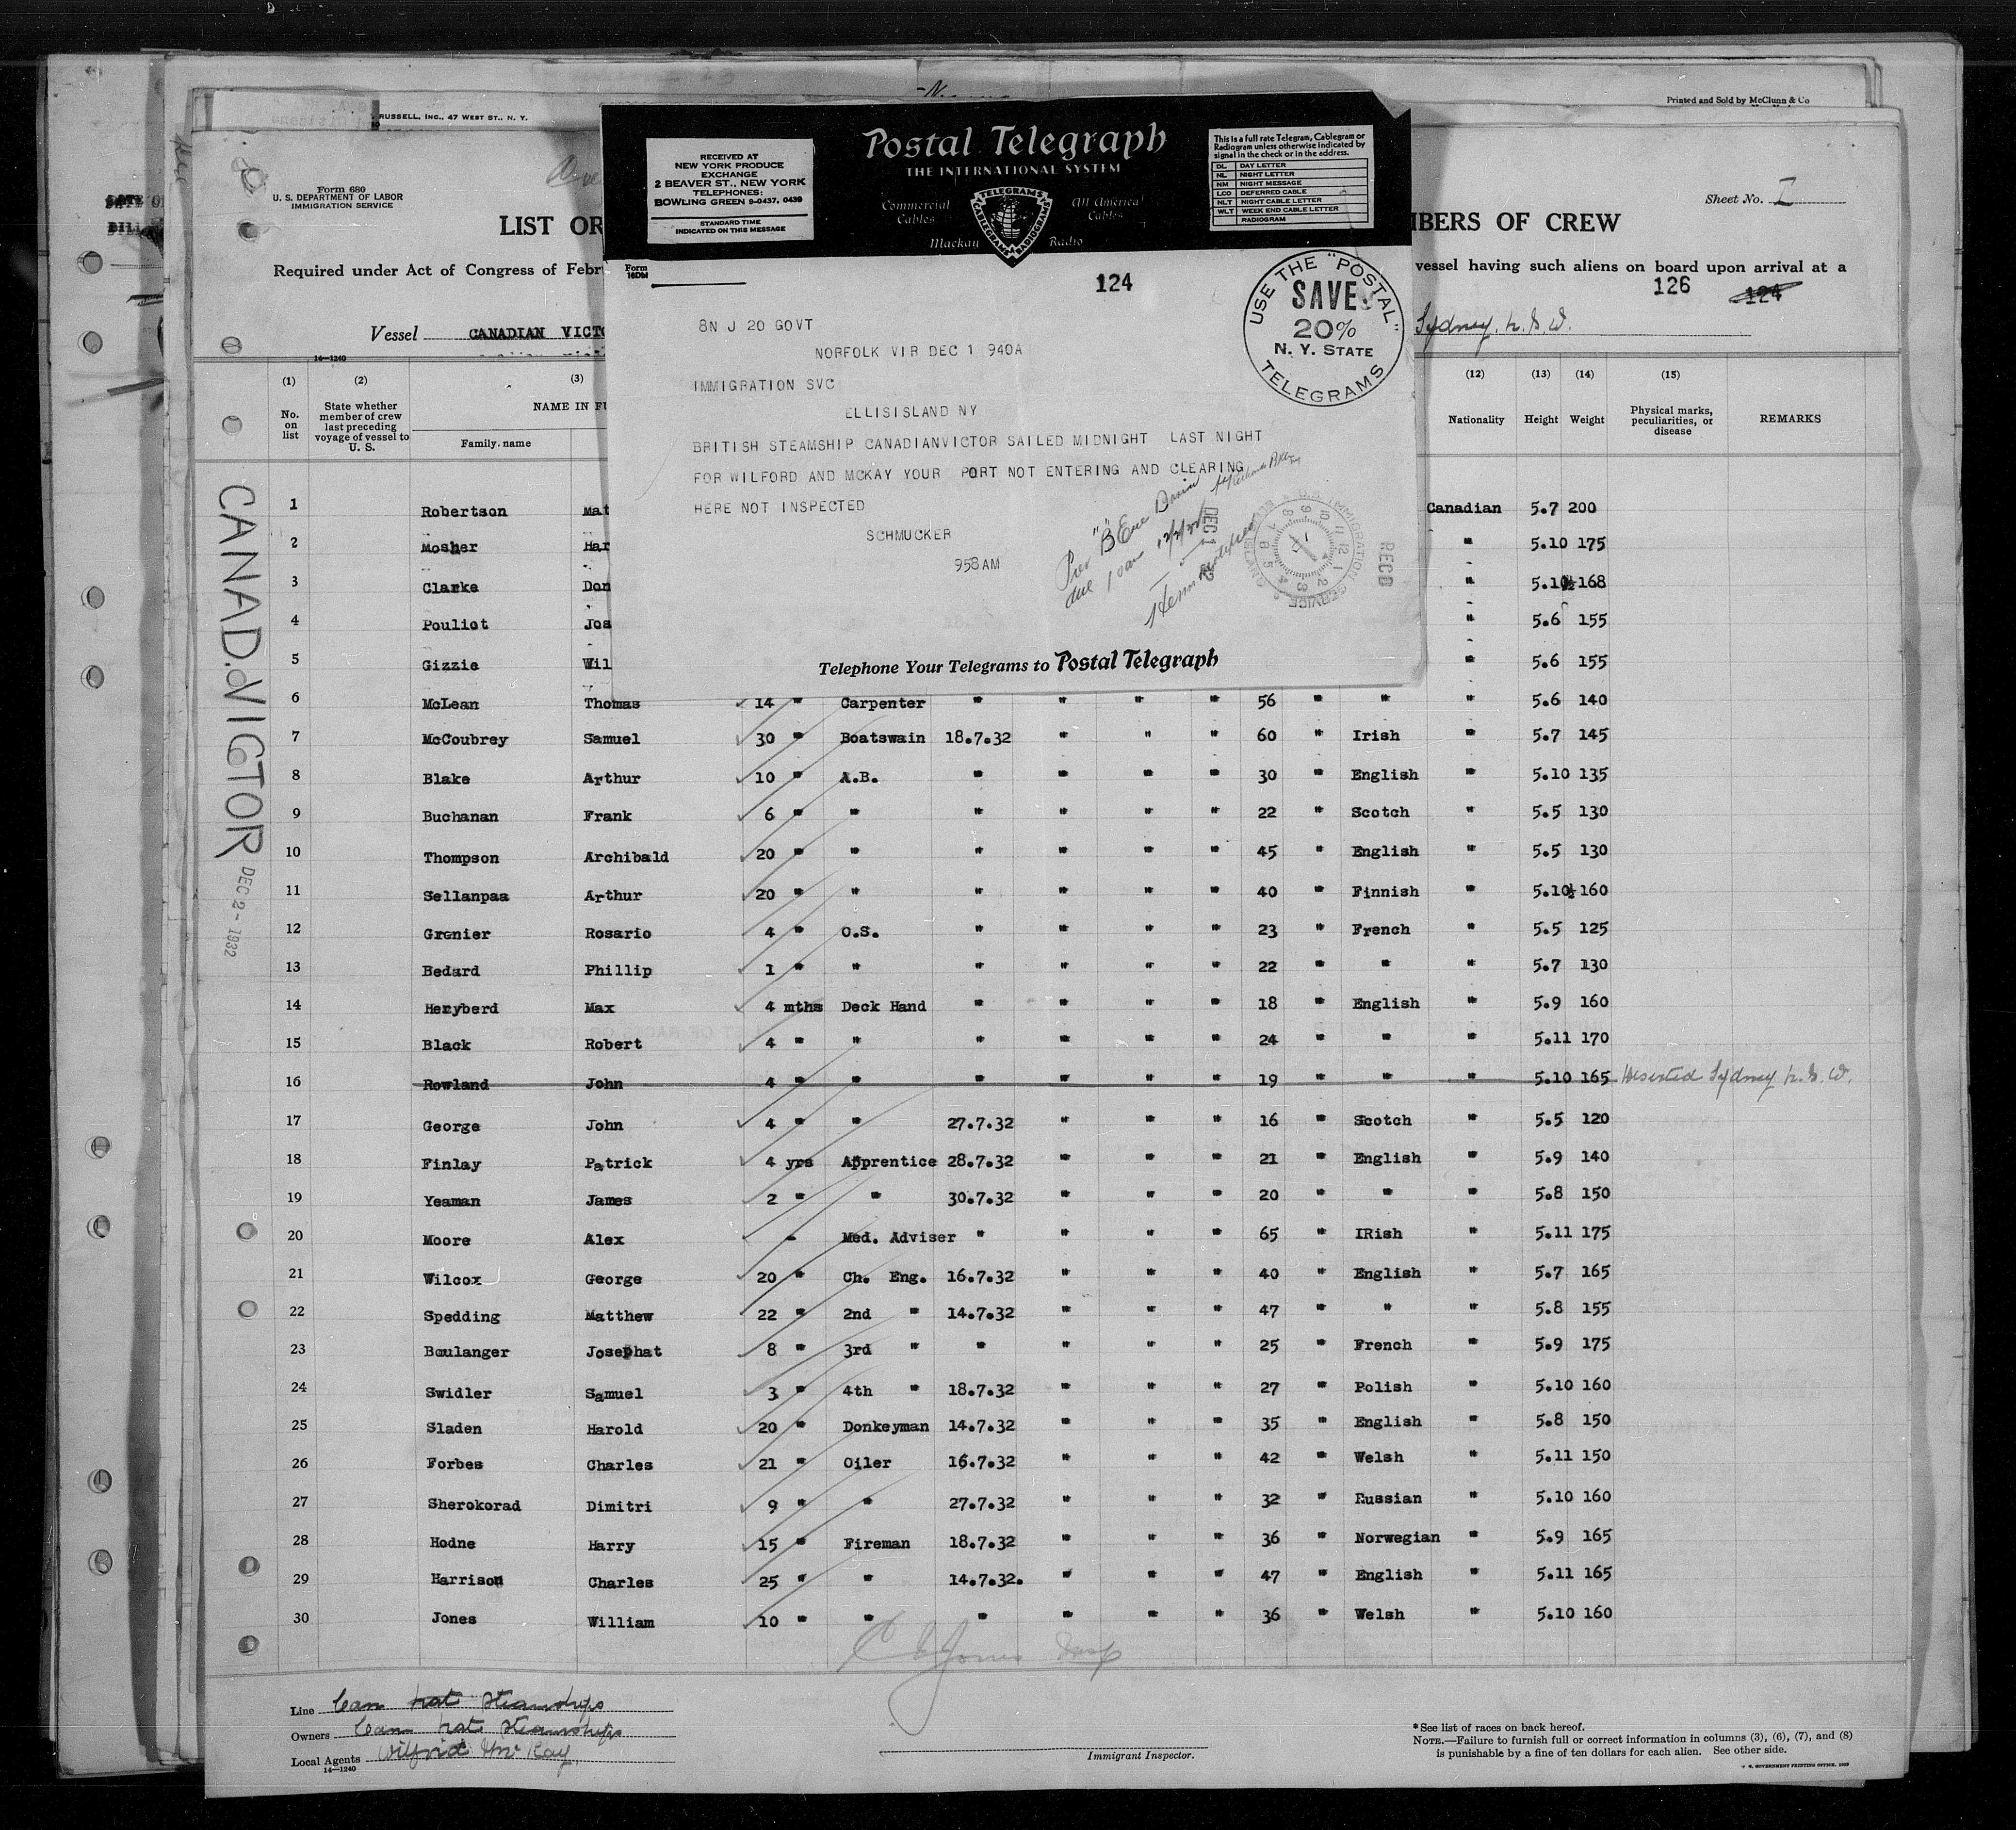 Printed and Sold by McClunn & Co
RUSSELL, INC., 47 WEST ST., N. Y.
Form 680
U. S. DEPARTMENT OF LABOR
IMMIGRATION SERVICE
Sheet No. I
LIST OR
MBERS OF CREW
Required under Act of Congress of Febr
vessel having such aliens on board upon arrival at a
126 124
Vessel CANADIAN VICTO
Sydney. N. S. W.
RECEIVED AT
NEW YORK PRODUCE
EXCHANGE
2 BEAVER ST., NEW YORK
TELEPHONES:
BOWLING GREEN 9-0437, 0439
STANDARD TIME
INDICATED ON THIS MESSAGE
Postal Telegraph
THE INTERNATIONAL SYSTEM
Commercial Cables
All America Cables
Mackay Radio
TELEGRAMS
CABLEGRAMS
RADIOGRAMS
This is a full rate Telegram, Cablegram or
Radiogram unless otherwise indicated by
signal in the check or in the address.
DL DAY LETTER
NL NIGHT LETTER
NM NIGHT MESSAGE
LCO DEFERRED CABLE
NLT NIGHT CABLE LETTER
WLT WEEK END CABLE LETTER
RADIOGRAM
Form
16DM
124
USE THE "POSTAL"
SAVE
20%
N. Y. STATE
TELEGRAMS
8N J 20 GOVT
NORFOLK VIR DEC 1 940A
IMMIGRATION SVC
ELLISISLAND NY
BRITISH STEAMSHIP CANADIANVICTOR SAILED MIDNIGHT LAST NIGHT
FOR WILFORD AND MCKAY YOUR PORT NOT ENTERING AND CLEARING
HERE NOT INSPECTED
SCHMUCKER
958AM
Pier "B" Erie Basin
due 10am 12/2/32
DEC 1
RECD
IMMIGRATION SERVICE
Telephone Your Telegrams to Postal Telegraph
14—1240
(1) (2) (3) (12) (13) (14) (15)
No. on list
State whether member of crew last preceding voyage of vessel to U. S.
NAME IN FU
Family name
Nationality Height Weight
Physical marks, peculiarities, or disease
REMARKS
CANAD. VICTOR
DEC 2 - 1932
1 Robertson Mat Canadian 5.7 200
2 Mosher Har " 5.10 175
3 Clarke Don " 5.10½ 168
4 Pouliot Jos " 5.6 155
5 Gizzie Wil " 5.6 155
6 McLean Thomas 14 " Carpenter " " " " 56 " " " 5.6 140
7 McCoubrey Samuel 30 " Boatswain 18.7.32 " " " 60 " Irish " 5.7 145
8 Blake Arthur 10 " A.B. " " " " 30 " English " 5.10 135
9 Buchanan Frank 6 " " " " " " 22 " Scotch " 5.5 130
10 Thompson Archibald 20 " " " " " " 45 " English " 5.5 130
11 Sellanpaa Arthur 20 " " " " " " 40 " Finnish " 5.10½ 160
12 Grenier Rosario 4 " O.S. " " " " 23 " French " 5.5 125
13 Bedard Phillip 1 " " " " " " 22 " " " 5.7 130
14 Heryberd Max 4 mths Deck Hand " " " " 18 " English " 5.9 160
15 Black Robert 4 " " " " " " 24 " " " 5.11 170
16 Rowland John 4 " " " " " " 19 " " " 5.10 165 Deserted Sydney N. S. W.
17 George John 4 " " 27.7.32 " " " 16 " Scotch " 5.5 120
18 Finlay Patrick 4 yrs Apprentice 28.7.32 " " " 21 " English " 5.9 140
19 Yeaman James 2 " " 30.7.32 " " " 20 " " " 5.8 150
20 Moore Alex - Med. Adviser " " " " 65 " IRish " 5.11 175
21 Wilcox George 20 " Ch. Eng. 16.7.32 " " " 40 " English " 5.7 165
22 Spedding Matthew 22 " 2nd " 14.7.32 " " " 47 " " " 5.8 155
23 Boulanger Josephat 8 " 3rd " " " " " 25 " French " 5.9 175
24 Swidler Samuel 3 " 4th " 18.7.32 " " " 27 " Polish " 5.10 160
25 Sladen Harold 20 " Donkeyman 14.7.32 " " " 35 " English " 5.8 150
26 Forbes Charles 21 " Oiler 16.7.32 " " " 42 " Welsh " 5.11 150
27 Sherokorad Dimitri 9 " " 27.7.32 " " " 32 " Russian " 5.10 160
28 Hodne Harry 15 " Fireman 18.7.32 " " " 36 " Norwegian " 5.9 165
29 Harrison Charles 25 " " 14.7.32. " " " 47 " English " 5.11 165
30 Jones William 10 " " " " " " 36 " Welsh " 5.10 160
Line Can Nat Steamships
Owners Can Nat Steamships
Local Agents Wilford & McKay
14—1240
Immigrant Inspector.
* See list of races on back hereof.
NOTE.—Failure to furnish full or correct information in columns (3), (6), (7), and (8)
is punishable by a fine of ten dollars for each alien. See other side.